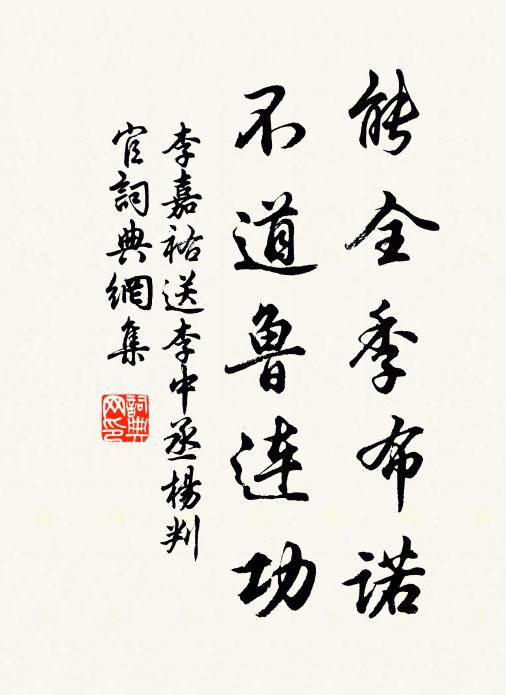 能全季布诺
不道鲁连功
李嘉祐送李中丞楊判
官詞典網集
詞典网印